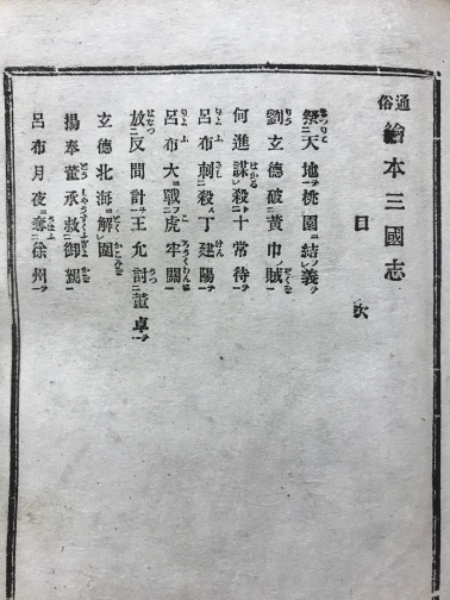 通俗繪本三國志
目次
祭天地桃園結義
劉玄德破黃巾賊
何進謀殺十常侍
呂布刺殺丁建陽
呂布大戰虎牢關
放反間計王允討董卓
玄德北海解圍
揚奉董承救御駕
呂布月夜奪徐州